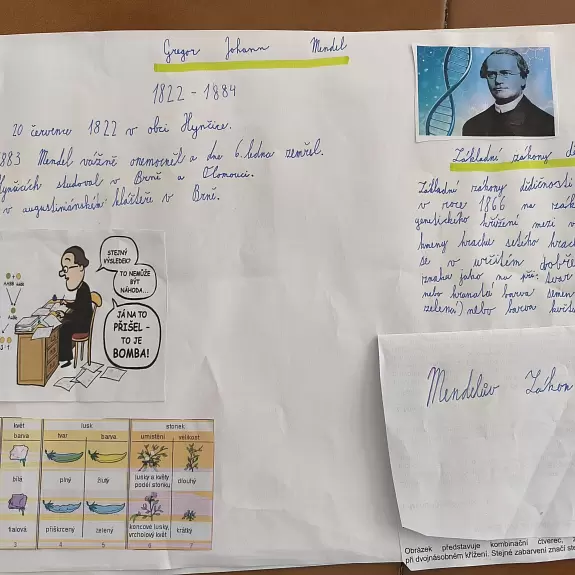 Gregor Johann Mendel
1822 - 1884
20 července 1822 v obci Hynčice.
1883 Mendel vážně onemocněl a dne 6. ledna zemřel.
Hynčicích studoval v Brně a Olomouci.
v augustiniánském klášteře v Brně.
Základní zákony dě
Základní zákony dědičnosti
v roce 1866 na zákl
genetického křížení mezi v
kmeny hrachu setého hrac
se v určitém dobře
znaku jako na př. tvar
nebo hranatá barva semen
zelená) nebo barva květu
STEJNÝ
VÝSLEDEK?
TO NEMŮŽE
BÝT
NÁHODA...
JÁ NA TO
PŘIŠEL -
TO JE
BOMBA!
Mendelův Zákon
květ lusk stonek
barva tvar barva umístění velikost
bílá plný žlutý lusky a květy podél stonku dlouhý
fialová přiškrcený zelený koncové lusky, vrcholový květ krátký
3 4 5 6 7
Obrázek představuje kombinační čtverec, 
při dvojnásobném křížení. Stejné zabarvení značí ste